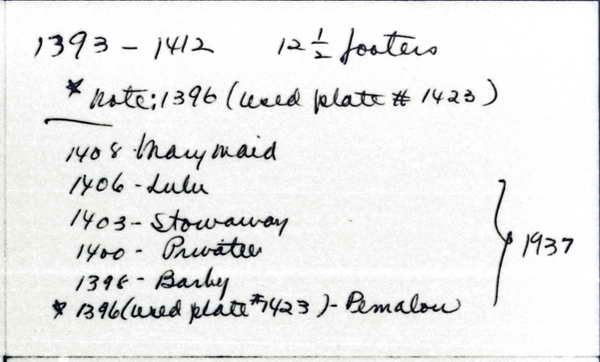 1393 - 1412 12 1/2 footers
* Note: 1396 (used plate # 1423)
1408 - Marymaid
1406 - Lulu
1403 - Stowaway
1400 -
1398 - Barby
* 1396 (used plate # 1423) - Pemalou
1937